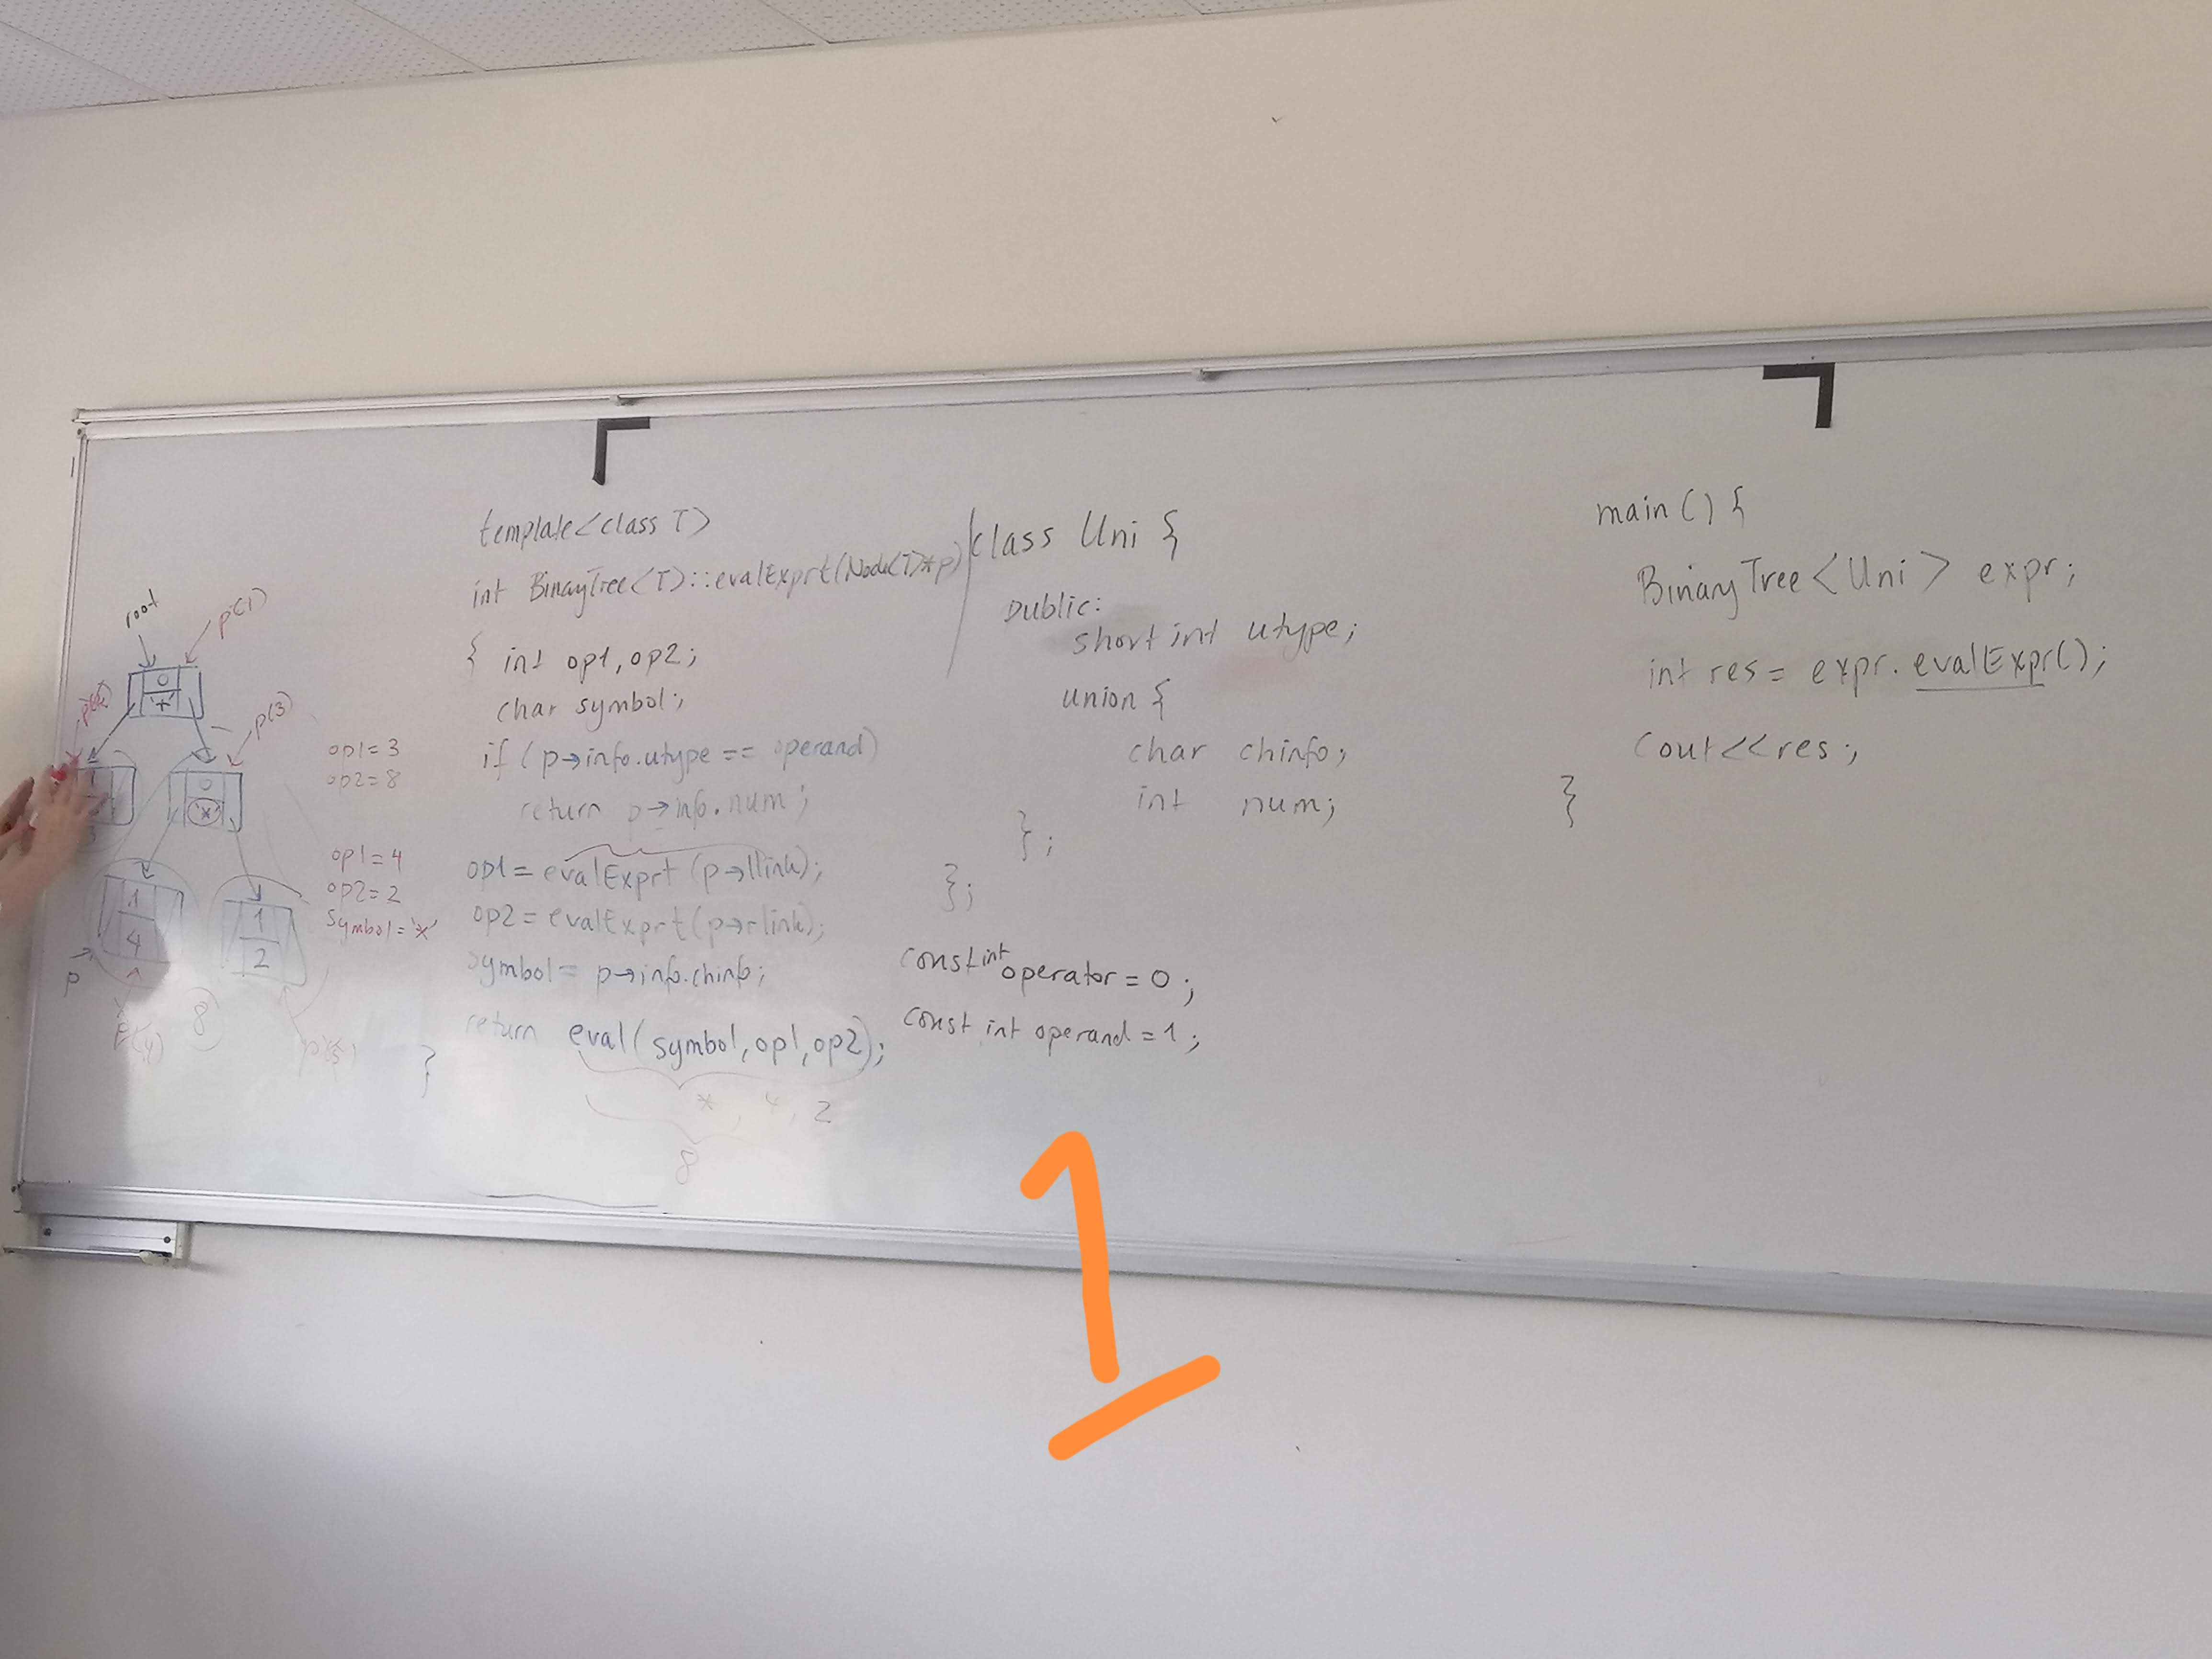 root
p(1)
0
'+'
p(3)
0
'*'
1
4
1
2
p
8
op1=3
op2=8
op1=4
op2=2
symbol='*'
template<class T>
int BinaryTree<T>::evalExprt(Node<T>*p)
{ int op1,op2;
char symbol;
if (p→info.utype == operand)
return p→info.num;
op1=evalExprt(p→llink);
op2=evalExprt(p→rlink);
symbol= p→info.chinfo;
return eval(symbol,op1,op2);
}
*, 4, 2
8
class Uni {
public:
short int utype;
union {
char chinfo;
int num;
};
};
const int operator=0;
const int operand=1;
main() {
BinaryTree<Uni> expr;
int res= expr.evalExpr();
cout<<res;
}
1